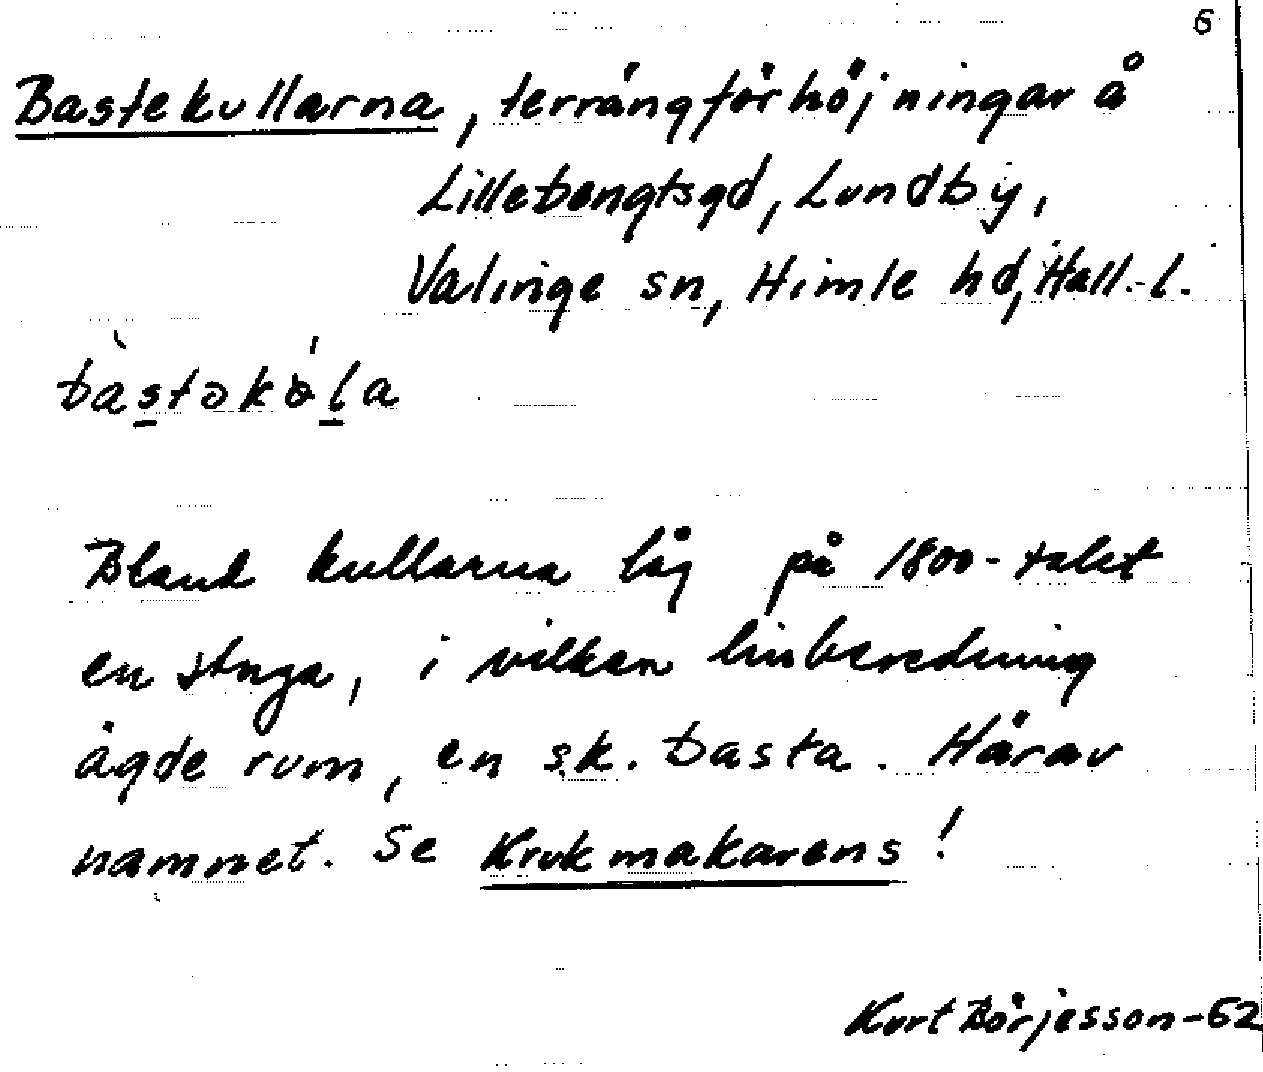 6
Bastekullarna, terrängförhöjningar å
Lillebengtsgd, Lundby,
Valinge sn, Himle hd, Hall.-l.
bàstəkə́la
Bland kullarna låg på 1800-talet
en stuga, i vilken linberedning
ägde rum, en s.k. basta. Härav
namnet. Se Krukmakarens!
Kurt Börjesson-62